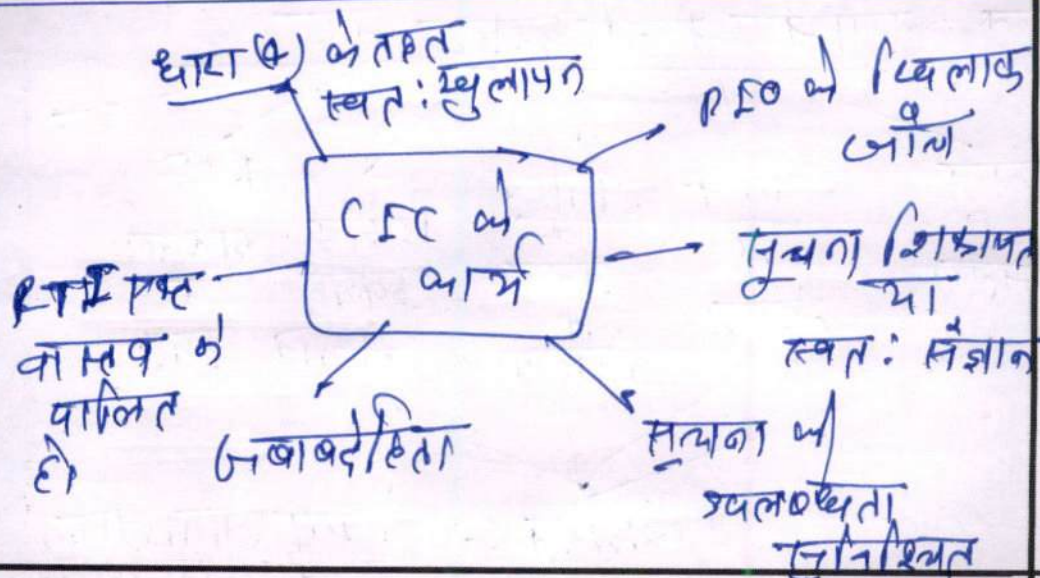 धारा (4) के तहत
स्वत: खुलापन
PIO के खिलाफ
जाँच
CIC के
कार्य
सूचना शिकायत
या
स्वत: संज्ञान
RTI
वास्तव में
पालित
हो
जबाबदेहिता
सूचना की
उपलब्धता
सुनिश्चित